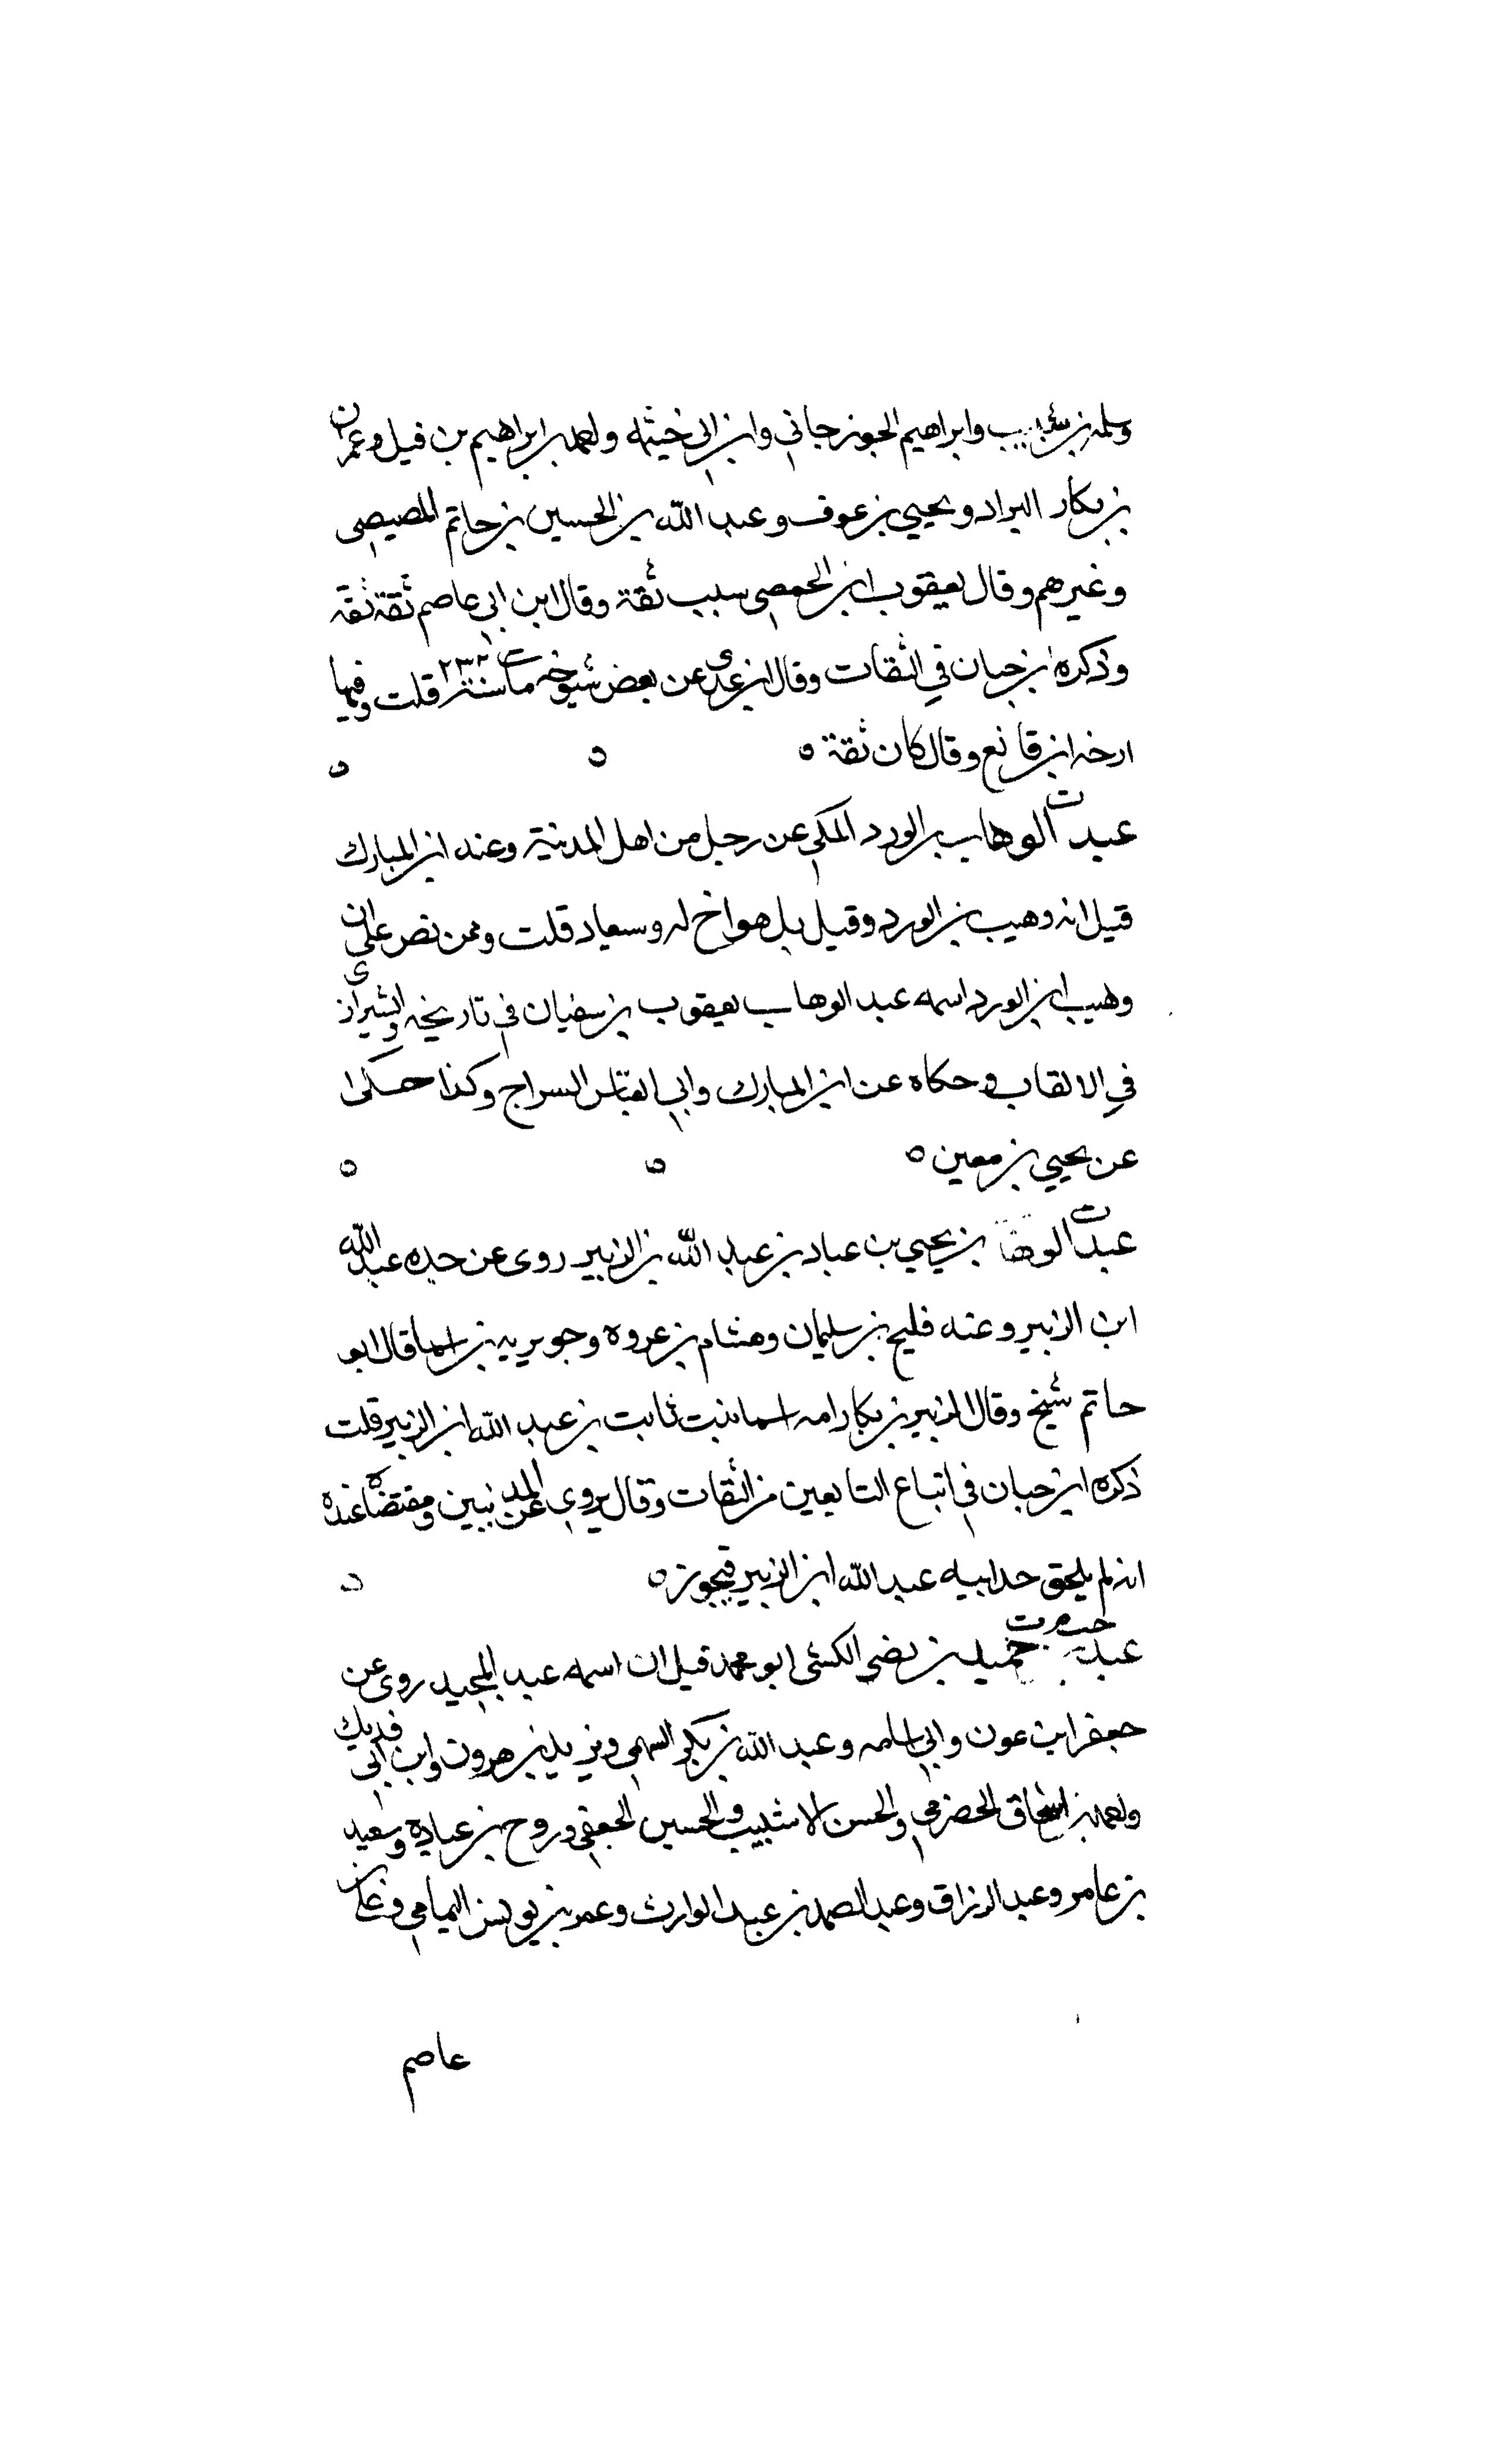 وسلمة بن شبيب وابراهيم الجوزجاني وابن ابي خيثمه واحمد بن ابراهيم بن فيل وعمران
بن بكار البراد ويحيي بن عوف وعبد الله بن الحسين بن حاتم المصيصي
وغيرهم وقال يعقوب ابن شيبه ثقة وقال ابن ابي عاصم ثقة ثقة
وذكره ابن حبان في الثقات وقال ابن عدي عن بعض شيوخه مات سنة ٢٣٢ قلت وفيها
ارخه ابن قانع وقال كان ثقة ٥
عبد الوهاب بن الورد المكي عن رجل من اهل المدينة وعنه ابن المبارك
قيل انه وهيب بن الورد وقيل بل هو اخ له وسيعاد قلت وممن نص علي ان
وهيب ابن الورد اسمه عبد الوهاب يعقوب بن سفيان في تاريخه والشيرازي
في الالقاب وحكاه عن ابن المبارك وابي العباس السراج وكذا حكى
عن يحيي بن معين ٥
عبد الوهاب بن يحيي بن عباد بن عبد الله بن الزبير روى عن جده عبد الله
ابن الزبير وعنه فليح بن سليمان وهشام بن عروه وجويريه بن اسما قال ابو
حاتم شيخ وقال الزبير بن بكار امه اسما بنت ثابت بن عبد الله ابن الزبير قلت
ذكره ابن حبان في اتباع التابعين من الثقات وقال يروي عن المدنيين ومقتضاه عنده
انه لم يلحق جد ابيه عبد الله ابن الزبير فيجوز ٥
عبد بن حميد بن نصر الكشي ابو محمد قيل ان اسمه عبد المجيد روى عن
جعفر ابن عون وابي اسامه وعبد الله بن بكر السهمي ويزيد بن هرون وابن ابي فديك
واحمد بن اسحاق الحضرمي والحسن الاشيب والحسين الجعفي وروح بن عباده وسعيد
بن عامر وعبد الرزاق وعبد الصمد بن عبد الوارث وعمر بن يونس اليمامي وعلي بن
عاصم